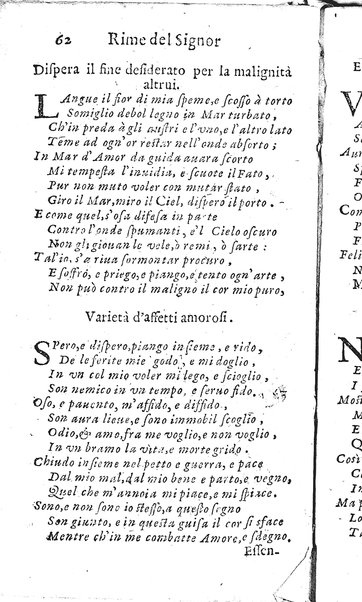 62 Rime del Signor
Dispera il fine desiderato per la malignità
altrui.
LAngue il fior di mia speme, e scosso à torto
Somiglio debol legno in Mar turbato,
Ch'in preda à gli austri e l'vno, e l'altro lato
Teme ad ogn'or restar nell'onde absorto;
In Mar d'Amor da guida auara scorto
Mi tempesta l'inuidia, e scuote il Fato,
Pur non muto voler con mutar stato,
Giro il Mar, miro il Ciel, disperò il porto.
E come quel, s'osa difesa in parte
Contro l'onde spumanti, e'l Cielo oscuro
Non gli giouan le vele, ò remi, ò sarte:
Tal'io, s'a riua sormontar procuro,
E soffrò, e priego, e piango, e tento ogn'arte,
Non può contro il maligno il cor mio puro,
Varietà d'affetti amorosi.
SPero, e dispero, piango insieme, e rido,
De le ferite mie godo, e mi doglio,
In vn col mio voler mi lego, e scioglio,
Son nemico in vn tempo, e seruo fido.
Oso, e pauento, m'affido, e diffido,
Son aura lieue, e sono immobil scoglio,
Odio, & amo, fra me voglio, e non voglio,
In vn bramo la vita, e morte grido.
Chiudo insieme nel petto e guerra, e pace
Dal mio mal, dal mio bene e parto, e vegno,
Quel che m'annoia mi piace, e mi spiace.
Sono, e non sono io stesso, a questo segno
Son giunto, e in questa guisa il cor si sface
Mentre ch'in me combatte Amore, e sdegno.
Essen-